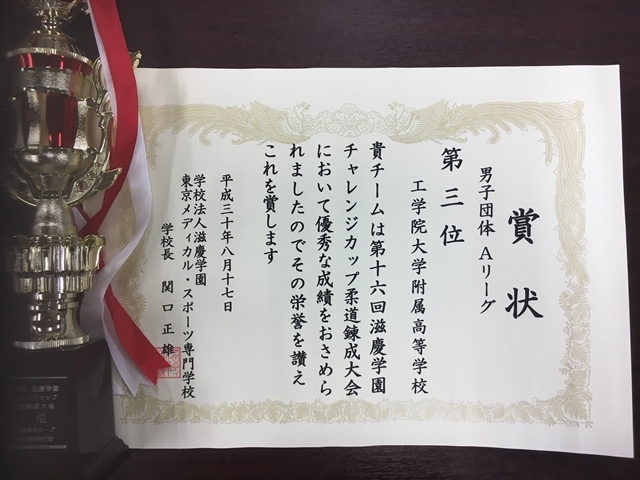 賞状
男子団体 Aリーグ
第三位
工学院大学附属高等学校
貴チームは第十六回滋慶学園
チャレンジカップ柔道錬成大会
において優秀な成績をおさめら
れましたのでその栄誉を讃え
これを賞します
平成三十年八月十七日
学校法人滋慶学園
東京メディカル・スポーツ専門学校
学校長 関口正雄